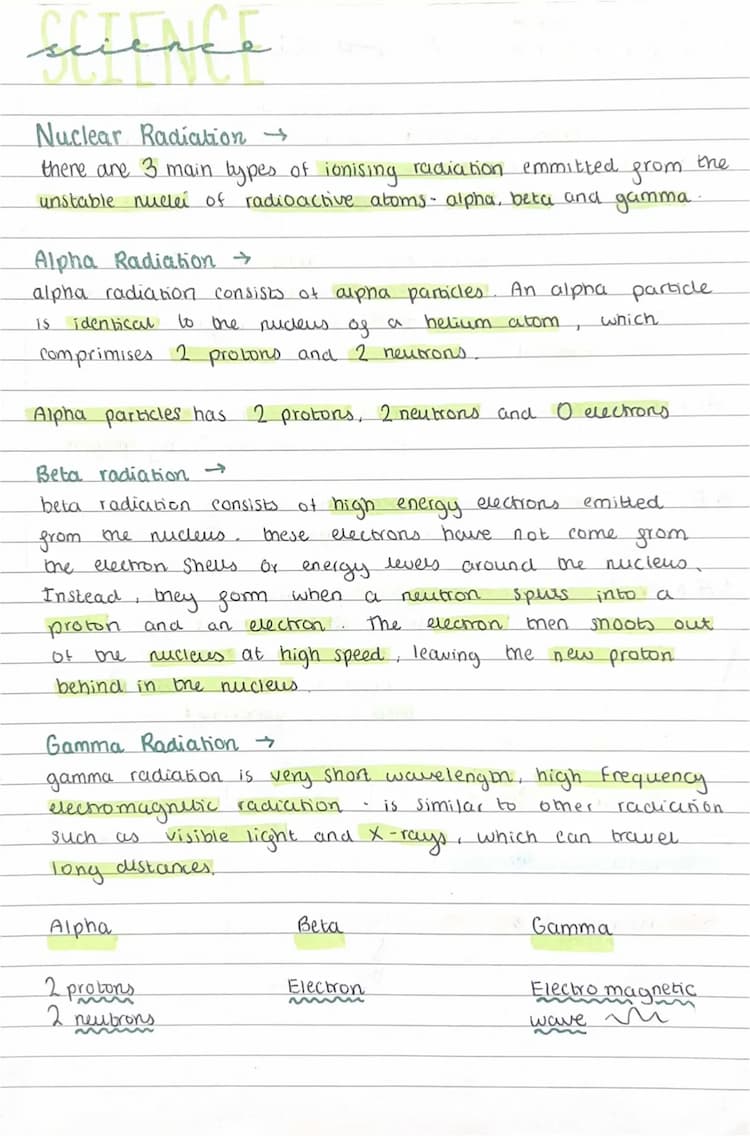 SCIENCE
science
Nuclear Radiation →
there are 3 main types of ionising radiation emmitted from the
unstable nuclei of radioactive atoms - alpha, beta and gamma.
Alpha Radiation →
alpha radiation consists of alpha particles. An alpha particle
is identical to the nucleus of a helium atom, which
comprimises 2 protons and 2 neutrons.
Alpha particles has 2 protons, 2 neutrons and 0 electrons
Beta radiation →
beta radiation consists of high energy electrons emitted
from the nucleus. these electrons have not come from
the electron shells or energy levels around the nucleus.
Instead, they form when a neutron splits into a
proton and an electron. The electron then shoots out
of the nucleus at high speed, leaving the new proton
behind in the nucleus.
Gamma Radiation →
gamma radiation is very short wavelength, high frequency
electromagnetic radiation. is similar to other radiation
such as visible light and X-rays, which can travel
long distances.
Alpha Beta Gamma
2 protons Electron Electromagnetic
2 neutrons wave